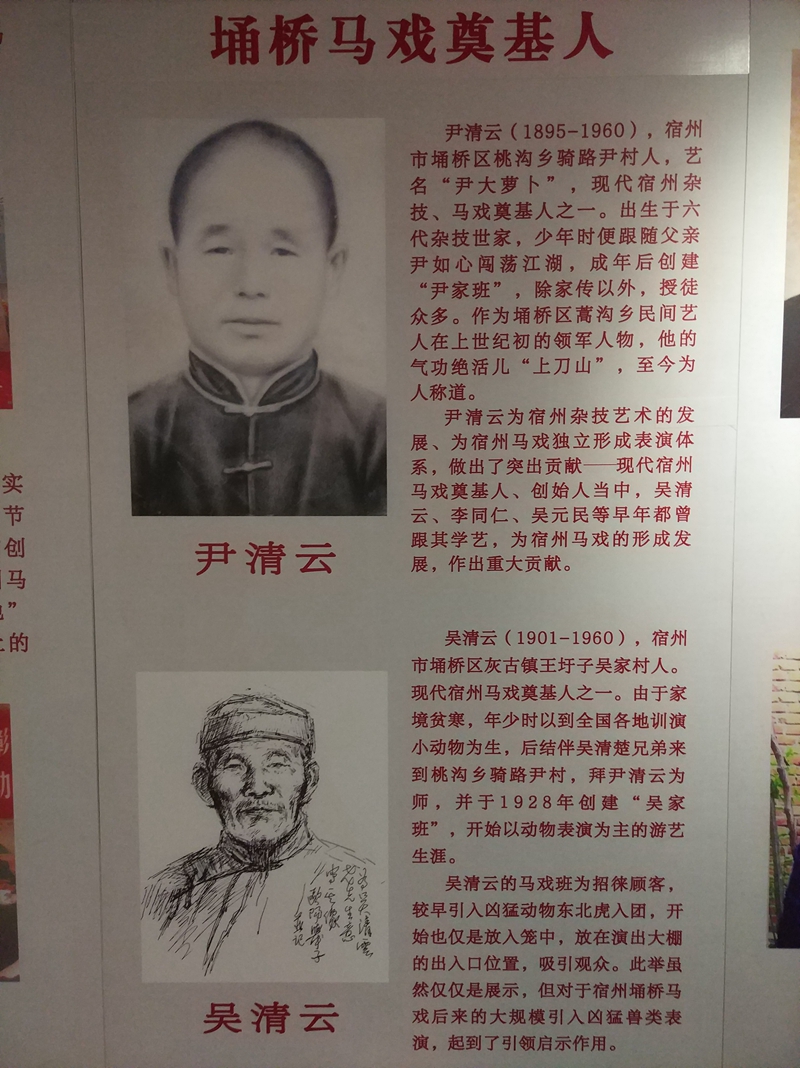 埇桥马戏奠基人
尹清云（1895-1960），宿州
市埇桥区桃沟乡骑路尹村人，艺
名“尹大萝卜”，现代宿州杂
技、马戏奠基人之一。出生于六
代杂技世家，少年时便跟随父亲
尹如心闯荡江湖，成年后创建
“尹家班”，除家传以外，授徒
众多。作为埇桥区蒿沟乡民间艺
人在上世纪初的领军人物，他的
气功绝活儿“上刀山”，至今为
人称道。
尹清云为宿州杂技艺术的发
展、为宿州马戏独立形成表演体
系，做出了突出贡献——现代宿州
马戏奠基人、创始人当中，吴清
云、李同仁、吴元民等早年都曾
跟其学艺，为宿州马戏的形成发
展，作出重大贡献。
尹清云
吴清云（1901-1960），宿州
市埇桥区灰古镇王圩子吴家村人。
现代宿州马戏奠基人之一。由于家
境贫寒，年少时以到全国各地训演
小动物为生，后结伴吴清楚兄弟来
到桃沟乡骑路尹村，拜尹清云为
师，并于1928年创建“吴家
班”，开始以动物表演为主的游艺
生涯。
吴清云的马戏班为招徕顾客，
较早引入凶猛动物东北虎入团，开
始也仅是放入笼中，放在演出大棚
的出入口位置，吸引观众。此举虽
然仅仅是展示，但对于宿州埇桥马
戏后来的大规模引入凶猛兽类表
演，起到了引领启示作用。
吴清云
实
节
创
马
上的